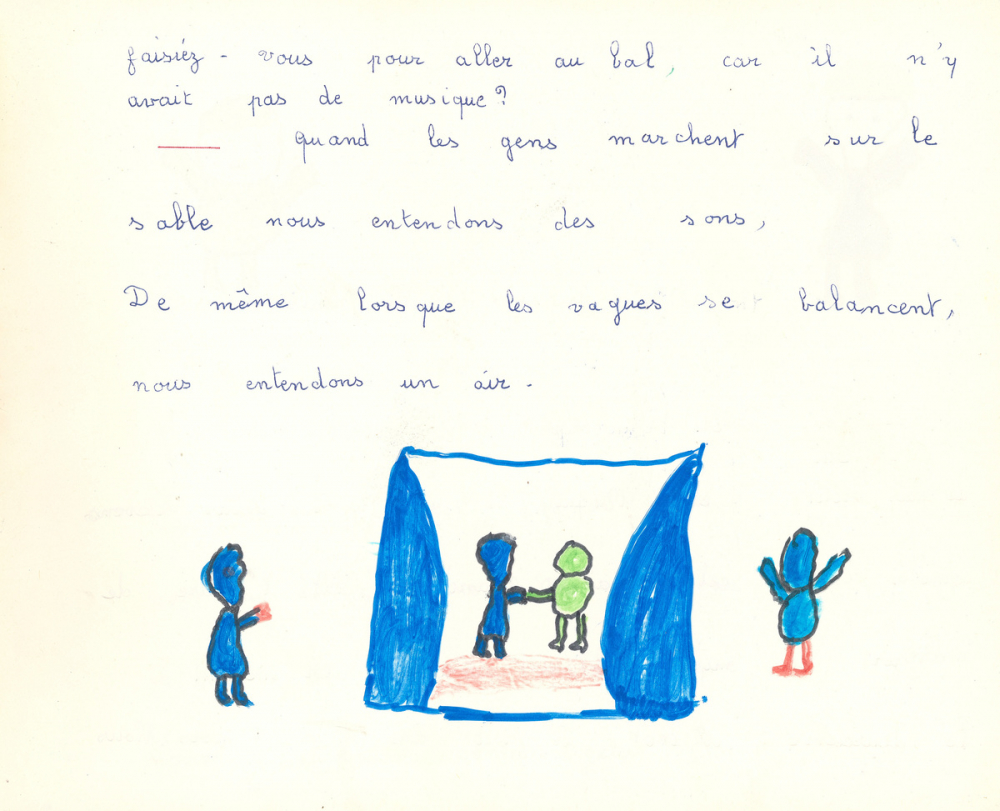 faisiéz - vous pour aller au bal, car il n'y
avait pas de musique?
quand les gens marchent sur le
sable nous entendons des sons,
De même lorsque les vagues se balancent,
nous entendons un air.